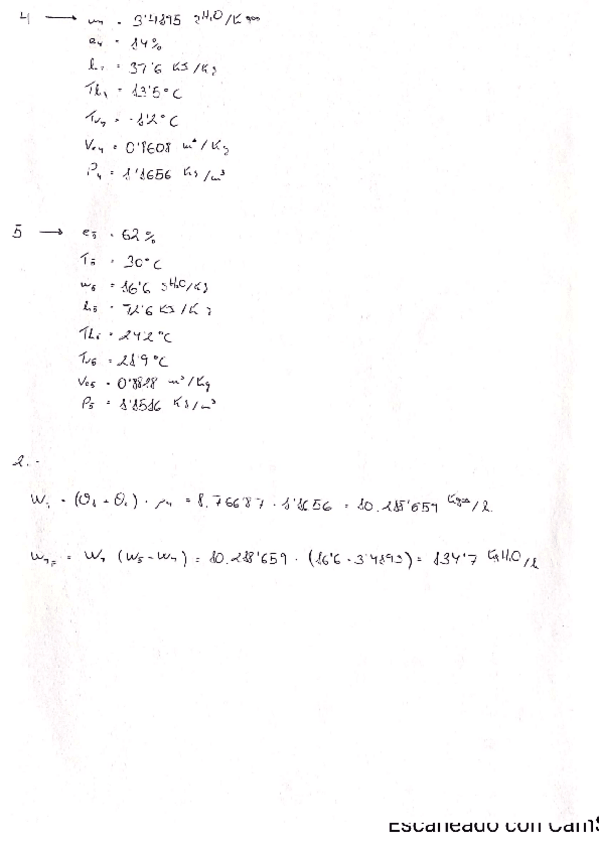 4 → w₄ = 3'4895 gH₂O/Kgas
e₄ = 14%
h₄ = 37'6 KJ/Kg
Th₄ = 13'5°C
Tr₄ = -1'2°C
Ve₄ = 0'8608 m³/Kg
ρ₄ = 1'1656 Kg/m³
5 → e₅ = 62%
T₅ = 30°C
w₅ = 16'6 gH₂O/Kg
h₅ = 72'6 KJ/Kg
Th₅ = 24'2°C
Tr₅ = 21'9°C
Ve₅ = 0'8818 m³/Kg
ρ₅ = 1'1516 Kg/m³
2.-
= 8.766'87 · 1'1656 = 10.218'659 Kgas/h
= W₄ (w₅ - w₄) = 10.218'659 · (16'6 - 3'4895) = 134'7 KgH₂O/h
Escaneado con CamS